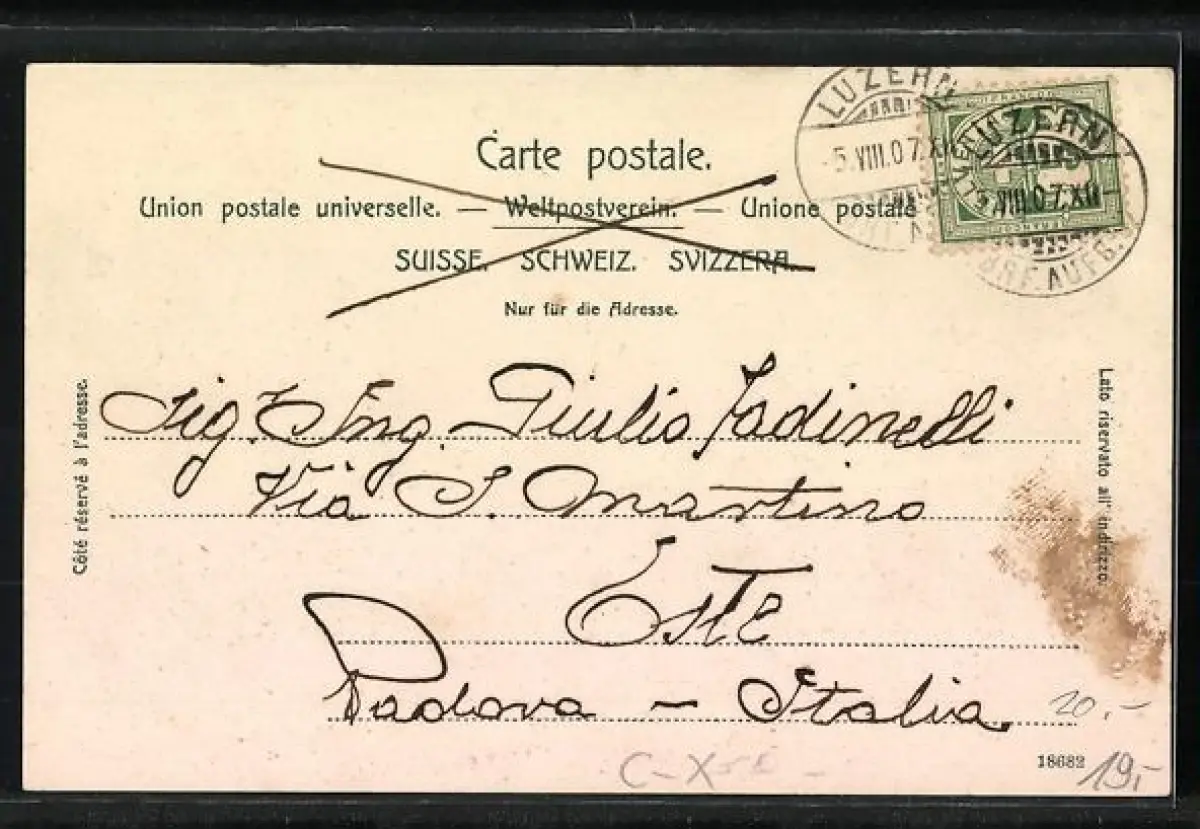 Carte postale.
Union postale universelle. — Weltpostverein. — Unione postale
SUISSE. SCHWEIZ. SVIZZERA.
Nur für die Adresse.
LUZERN
5.VIII.07.XII
LUZERN
VIII.07.XII
BRF.AUFG.
FRANCO
Côté réservé à l'adresse.
Lato riservato all' indirizzo.
Sig. Ing. Giulio Jadinelli
Via S. Martino
Este
Padova - Italia
20.-
18682
19,-
C-X